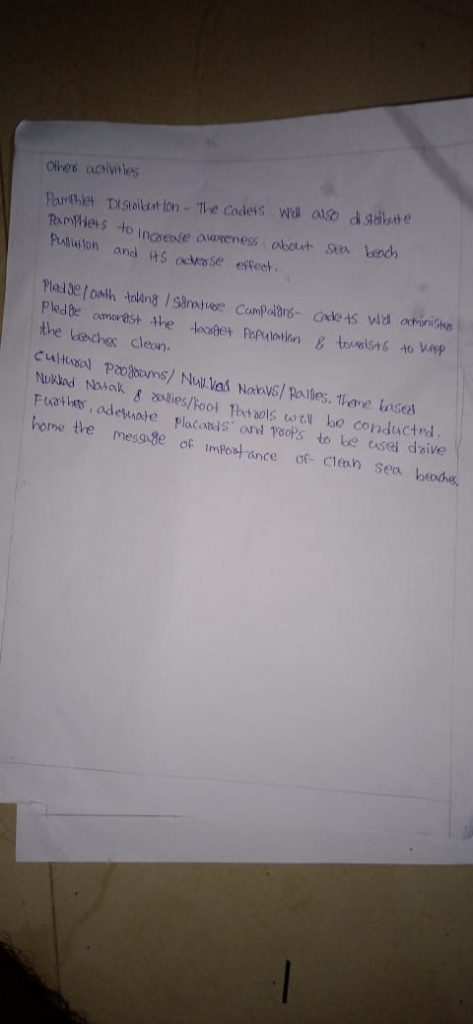 Other activities
Pamphlet Distribution - The Cadets Will also distribute
Pamphlets to Increase awareness about Sea beach
Pullution and its adverse effect.
Pledge/oath taking / Signature Campaigns- Cadets Will administer
Pledge amongst the target Population & tourists to keep
the beaches clean.
Cultural Programs/ Nukkad Nataks/ Rallies. Theme based
Nukkad Natak & rallies/Foot Patrols will be conductrd.
Further, adequate Placards and Props to be used drive
home the message of importance of clean sea beaches.